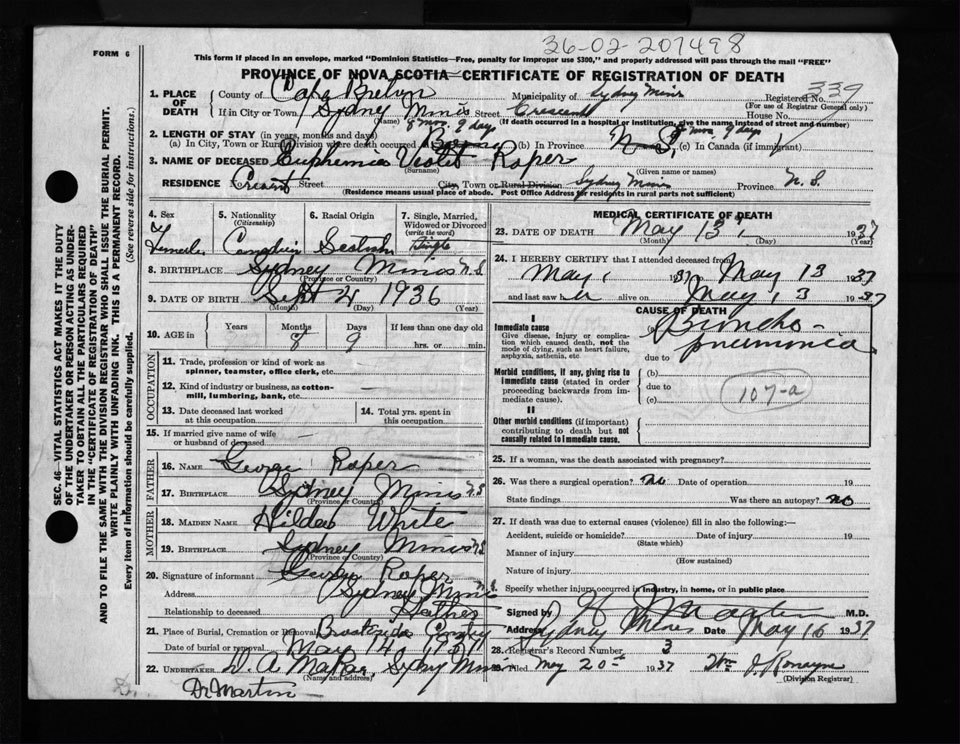 36-02-207498
FORM 6
This form if placed in an envelope, marked "Dominion Statistics—Free, penalty for improper use $300," and properly addressed will pass through the mail "FREE"
PROVINCE OF NOVA SCOTIA—CERTIFICATE OF REGISTRATION OF DEATH
339
SEC. 46—VITAL STATISTICS ACT MAKES IT THE DUTY
OF THE UNDERTAKER OR PERSON ACTING AS UNDER-
TAKER TO OBTAIN ALL THE PARTICULARS REQUIRED
IN THE "CERTIFICATE OF REGISTRATION OF DEATH"
AND TO FILE THE SAME WITH THE DIVISION REGISTRAR WHO SHALL ISSUE THE BURIAL PERMIT.
WRITE PLAINLY WITH UNFADING INK. THIS IS A PERMANENT RECORD.
Every item of information should be carefully supplied. (See reverse side for instructions.)
1. PLACE OF DEATH County of Cape Breton Municipality of Sydney Mines Registered No.
(For use of Registrar General only)
If in City or Town Sydney Mines Street Crescent House No.
(Name) (If death occurred in a hospital or institution, give the name instead of street and number)
2. LENGTH OF STAY (in years, months and days) 8 mos. 9 days
(a) In City, Town or Rural Division where death occurred (b) In Province N.S. 8 mos. 9 days (c) In Canada (if immigrant)
3. NAME OF DECEASED Euphemia Violet Roper
(Surname) (Given name or names)
RESIDENCE Cresent Street City, Town or Rural Division Sydney Mines Province N.S.
(Residence means usual place of abode. Post Office Address for residents in rural parts not sufficient)
4. Sex Female
5. Nationality (Citizenship) Canadian
6. Racial Origin Scotish
7. Single, Married, Widowed or Divorced (write the word) Single
8. BIRTHPLACE Sydney Mines N.S.
(Province or Country)
9. DATE OF BIRTH Sept 4 1936
(Month) (Day) (Year)
10. AGE in Years Months 8 Days 9 If less than one day old hrs. or min.
OCCUPATION
11. Trade, profession or kind of work as spinner, teamster, office clerk, etc. —
12. Kind of industry or business, as cotton-mill, lumbering, bank, etc. —
13. Date deceased last worked at this occupation
14. Total yrs. spent in this occupation
15. If married give name of wife or husband of deceased —
FATHER
16. NAME George Roper
17. BIRTHPLACE Sydney Mines N.S
(Province or Country)
MOTHER
18. MAIDEN NAME Hilda White
19. BIRTHPLACE Sydney Mines N.S
(Province or Country)
20. Signature of informant George Roper
Address Sydney Mines N.S.
Relationship to deceased Father
21. Place of Burial, Cremation or Removal Brookside
Date of burial or removal May 14 1937
22. UNDERTAKER D. A. Sydney Mines
(Name and address)
Dr Martin
MEDICAL CERTIFICATE OF DEATH
23. DATE OF DEATH May 13, 1937
(Month) (Day) (Year)
24. I HEREBY CERTIFY that I attended deceased from
May 1 1937 to May 13 1937
and last saw alive on May 13 1937
CAUSE OF DEATH
I
Immediate cause
Give disease, injury or complication which caused death, not the mode of dying, such as heart failure, asphyxia, asthenia, etc
(a) Broncho-pneumonia
due to
Morbid conditions, if any, giving rise to immediate cause (stated in order proceeding backwards from immediate cause).
(b)
due to
(c)
107-a
II
Other morbid conditions (if important) contributing to death but not causally related to immediate cause.
25. If a woman, was the death associated with pregnancy?
26. Was there a surgical operation? No Date of operation 19
State findings Was there an autopsy? no
27. If death was due to external causes (violence) fill in also the following:—
Accident, suicide or homicide? Date of injury 19
(State which)
Manner of injury
(How sustained)
Nature of injury
Specify whether injury occurred in industry, in home, or in public place
Signed by M.D.
Address Sydney Mines Date May 16 1937
28. Registrar's Record Number 3
29. Filed May 20th 1937
(Division Registrar)